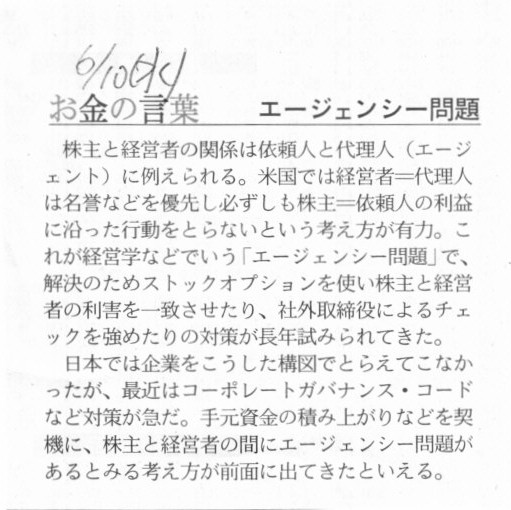 6/10(水)
お金の言葉　エージェンシー問題
　株主と経営者の関係は依頼人と代理人（エージ
ェント）に例えられる。米国では経営者＝代理人
は名誉などを優先し必ずしも株主＝依頼人の利益
に沿った行動をとらないという考え方が有力。こ
れが経営学などでいう「エージェンシー問題」で、
解決のためストックオプションを使い株主と経営
者の利害を一致させたり、社外取締役によるチェ
ックを強めたりの対策が長年試みられてきた。
　日本では企業をこうした構図でとらえてこなか
ったが、最近はコーポレートガバナンス・コード
など対策が急だ。手元資金の積み上がりなどを契
機に、株主と経営者の間にエージェンシー問題が
あるとみる考え方が前面に出てきたといえる。